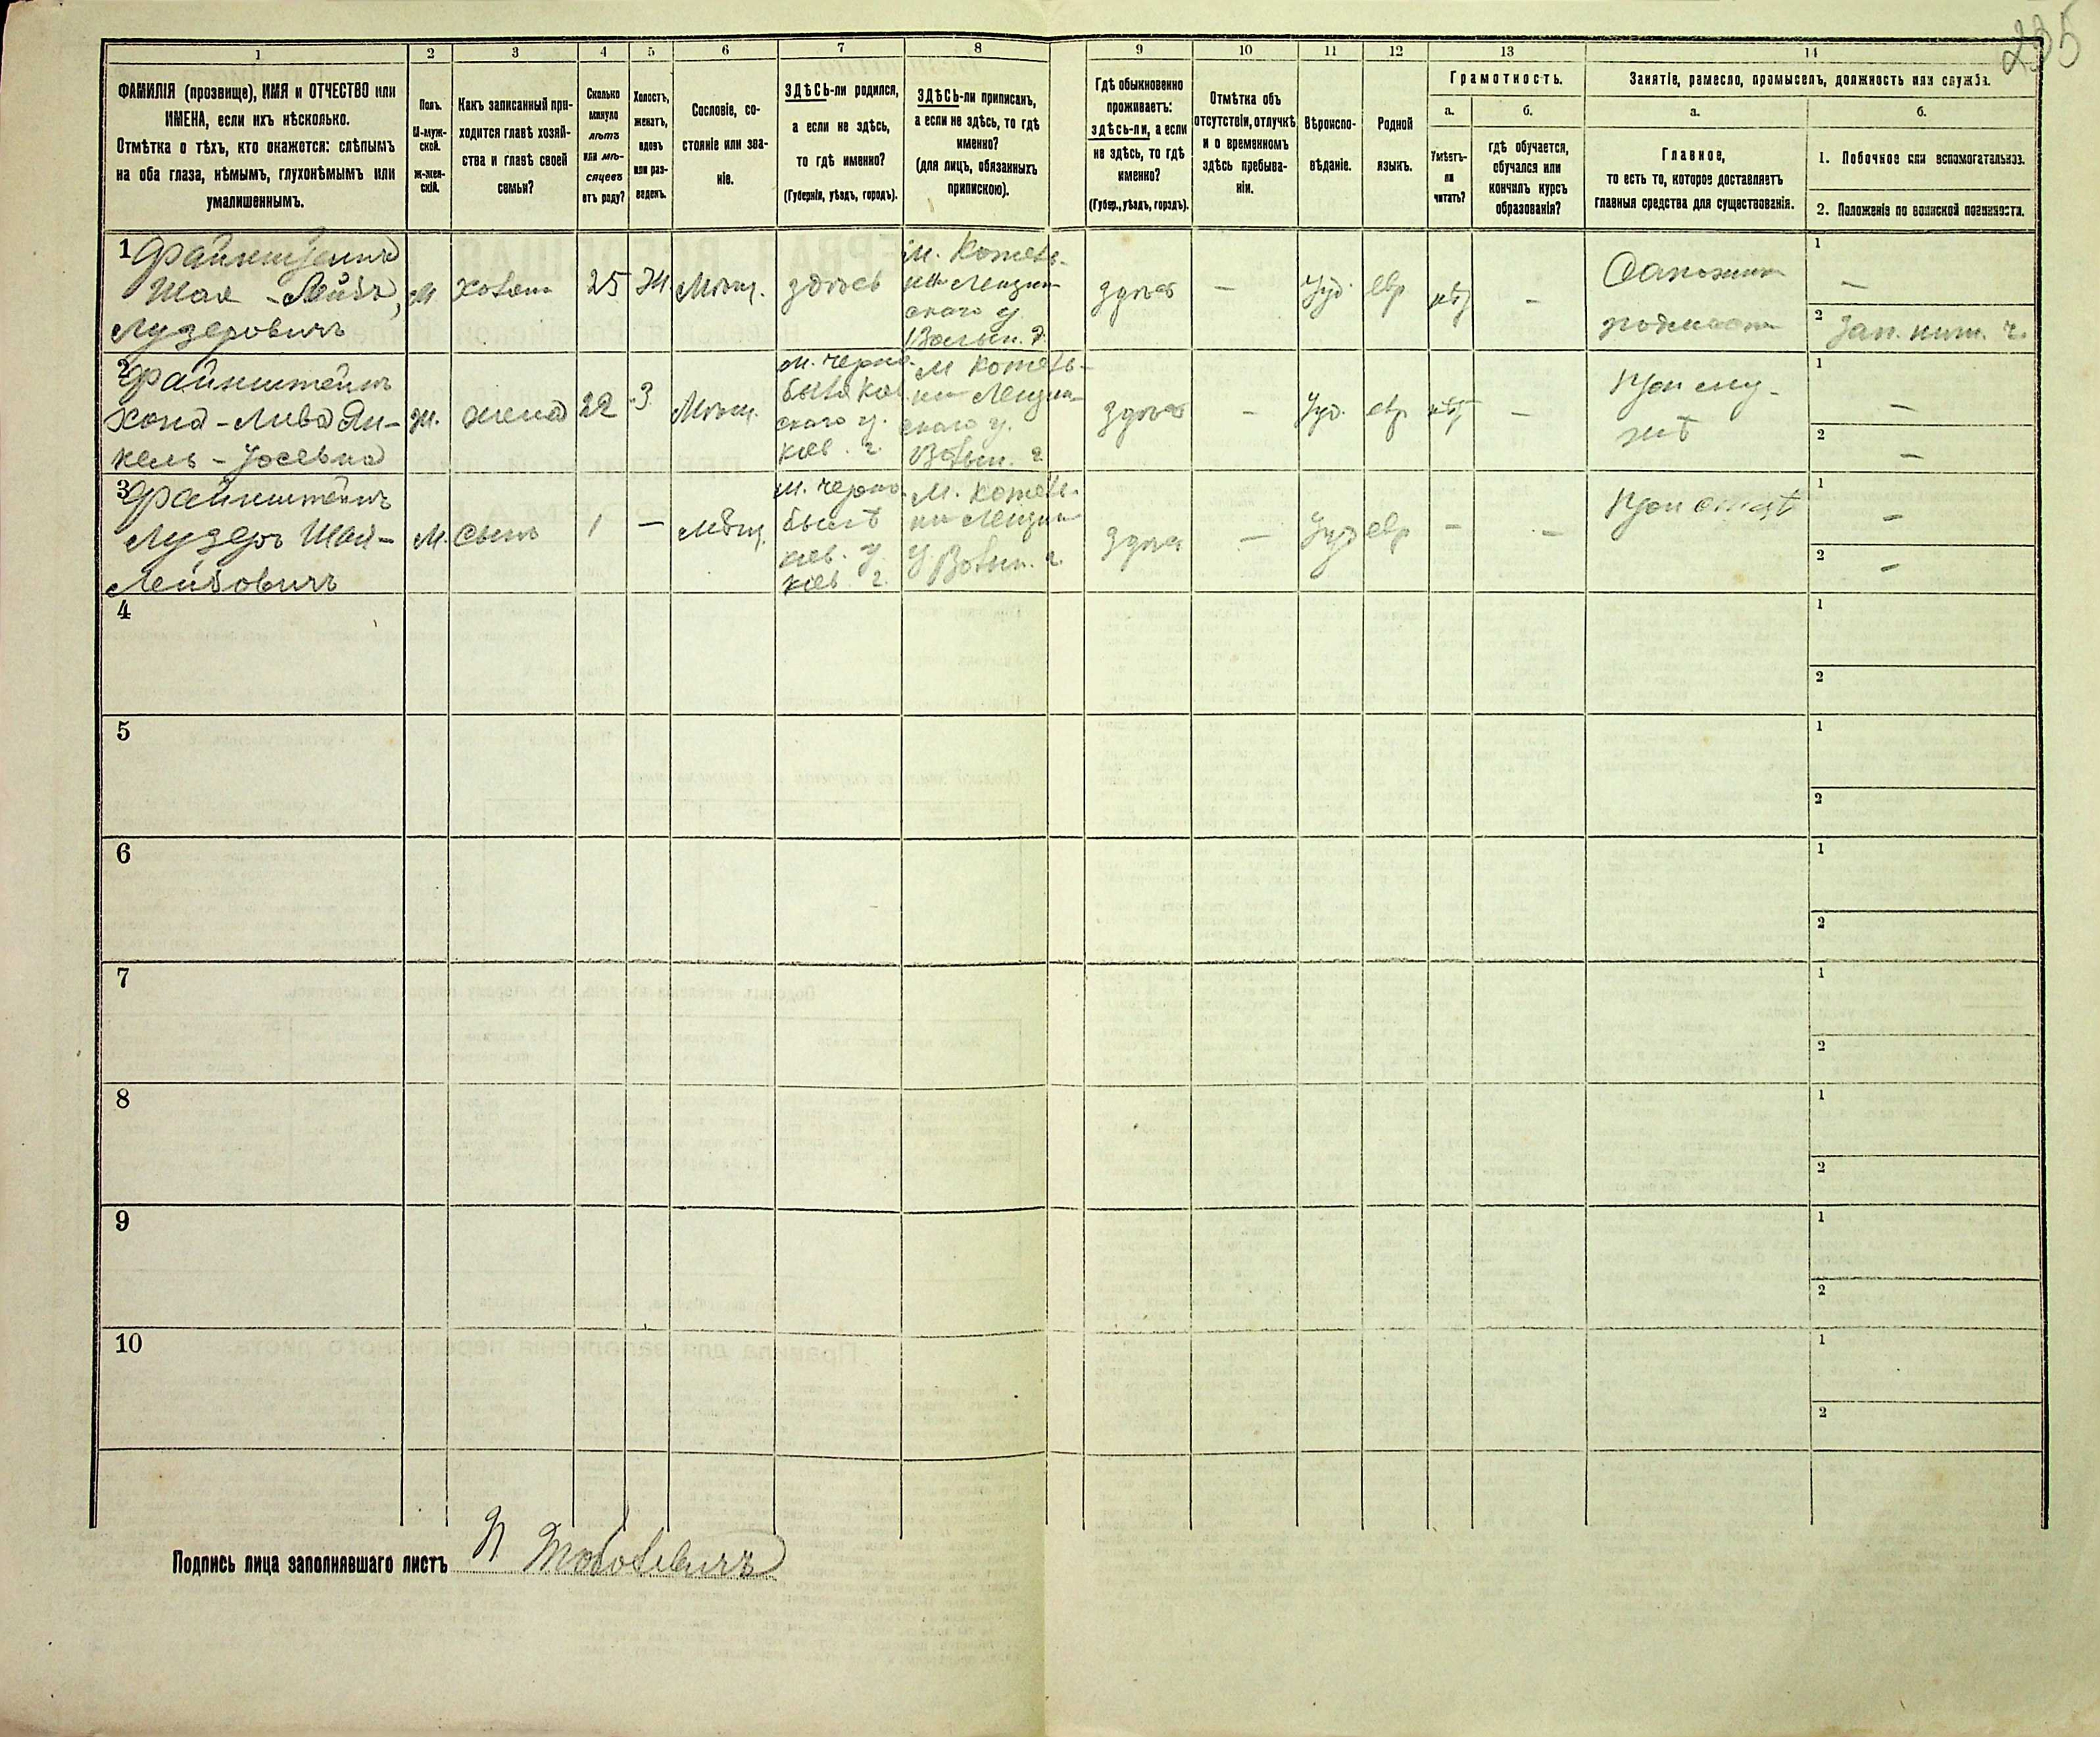 235
1
2
3
4
5
6
7
8
9
10
11
12
13
14
ФАМИЛІЯ (прозвище), ИМЯ и ОТЧЕСТВО или
ИМЕНА, если ихъ нѣсколько.
Отмѣтка о тѣхъ, кто окажется: слѣпымъ
на оба глаза, нѣмымъ, глухонѣмымъ или
умалишеннымъ.
Полъ.
М-муж-
ской.
ж-жен-
скій.
Какъ записанный при-
ходится главѣ хозяй-
ства и главѣ своей
семьи?
Сколько
минуло
лѣтъ
или мѣ-
сяцевъ
отъ роду?
Холостъ,
женатъ,
вдовъ
или раз-
веденъ.
Сословіе, со-
стояніе или зва-
ніе.
ЗДѢСЬ-ли родился,
а если не здѣсь,
то гдѣ именно?
(Губернія, уѣздъ, городъ).
ЗДѢСЬ-ли приписанъ,
а если не здѣсь, то гдѣ
именно?
(для лицъ, обязанныхъ
припискою).
Гдѣ обыкновенно
проживаетъ:
здѣсь-ли, а если
не здѣсь, то гдѣ
именно?
(Губер., уѣздъ, городъ).
Отмѣтка объ
отсутствіи, отлучкѣ
и о временномъ
здѣсь пребыва-
ніи.
Вѣроиспо-
вѣданіе.
Родной
языкъ.
Грамотность.
а.
Умѣетъ-
ли
читать?
б.
гдѣ обучается,
обучался или
кончилъ курсъ
образованія?
Занятіе, ремесло, промыселъ, должность или служба.
а.
Главное,
то есть то, которое доставляетъ
главныя средства для существованія.
б.
1. Побочное или вспомогательное.
2. Положеніе по воинской повинности.
1 Файнштейнъ
Шая - Лейбъ,
Лузеровичъ
М
хозяинъ
25
Ж
Мѣщ.
здѣсь
м. Котель-
ни
скаго у.
Волын. г.
здѣсь
—
Іуд.
евр
нѣт
—
Сапожникъ
1
—
2
Зап. нит. ч.
2 Файнштейнъ
Хона - Лива Ян-
кель - Іосевна
Ж.
жена
22
З
Мѣщ.
м. Черно-
быля Кіев
скаго у.
Кіев. г.
м Котель-
ни
скаго у.
Волын. г
здѣсь
—
Іуд.
евр
нѣт
—
При му-
жѣ
1
—
2
—
3 Файнштейнъ
Лузеръ Шая-
Лейбовичъ
М.
сынъ
1
—
Мѣщ.
м. Черно-
былѣ
кіев. у.
кіев г.
М. Котель-
ни
у. Волын. г.
здѣсь
—
Іуд
евр
—
—
При отцѣ
1
—
2
—
4
1
2
5
1
2
6
1
2
7
1
2
8
1
2
9
1
2
10
1
2
Подпись лица заполнявшаго листъ